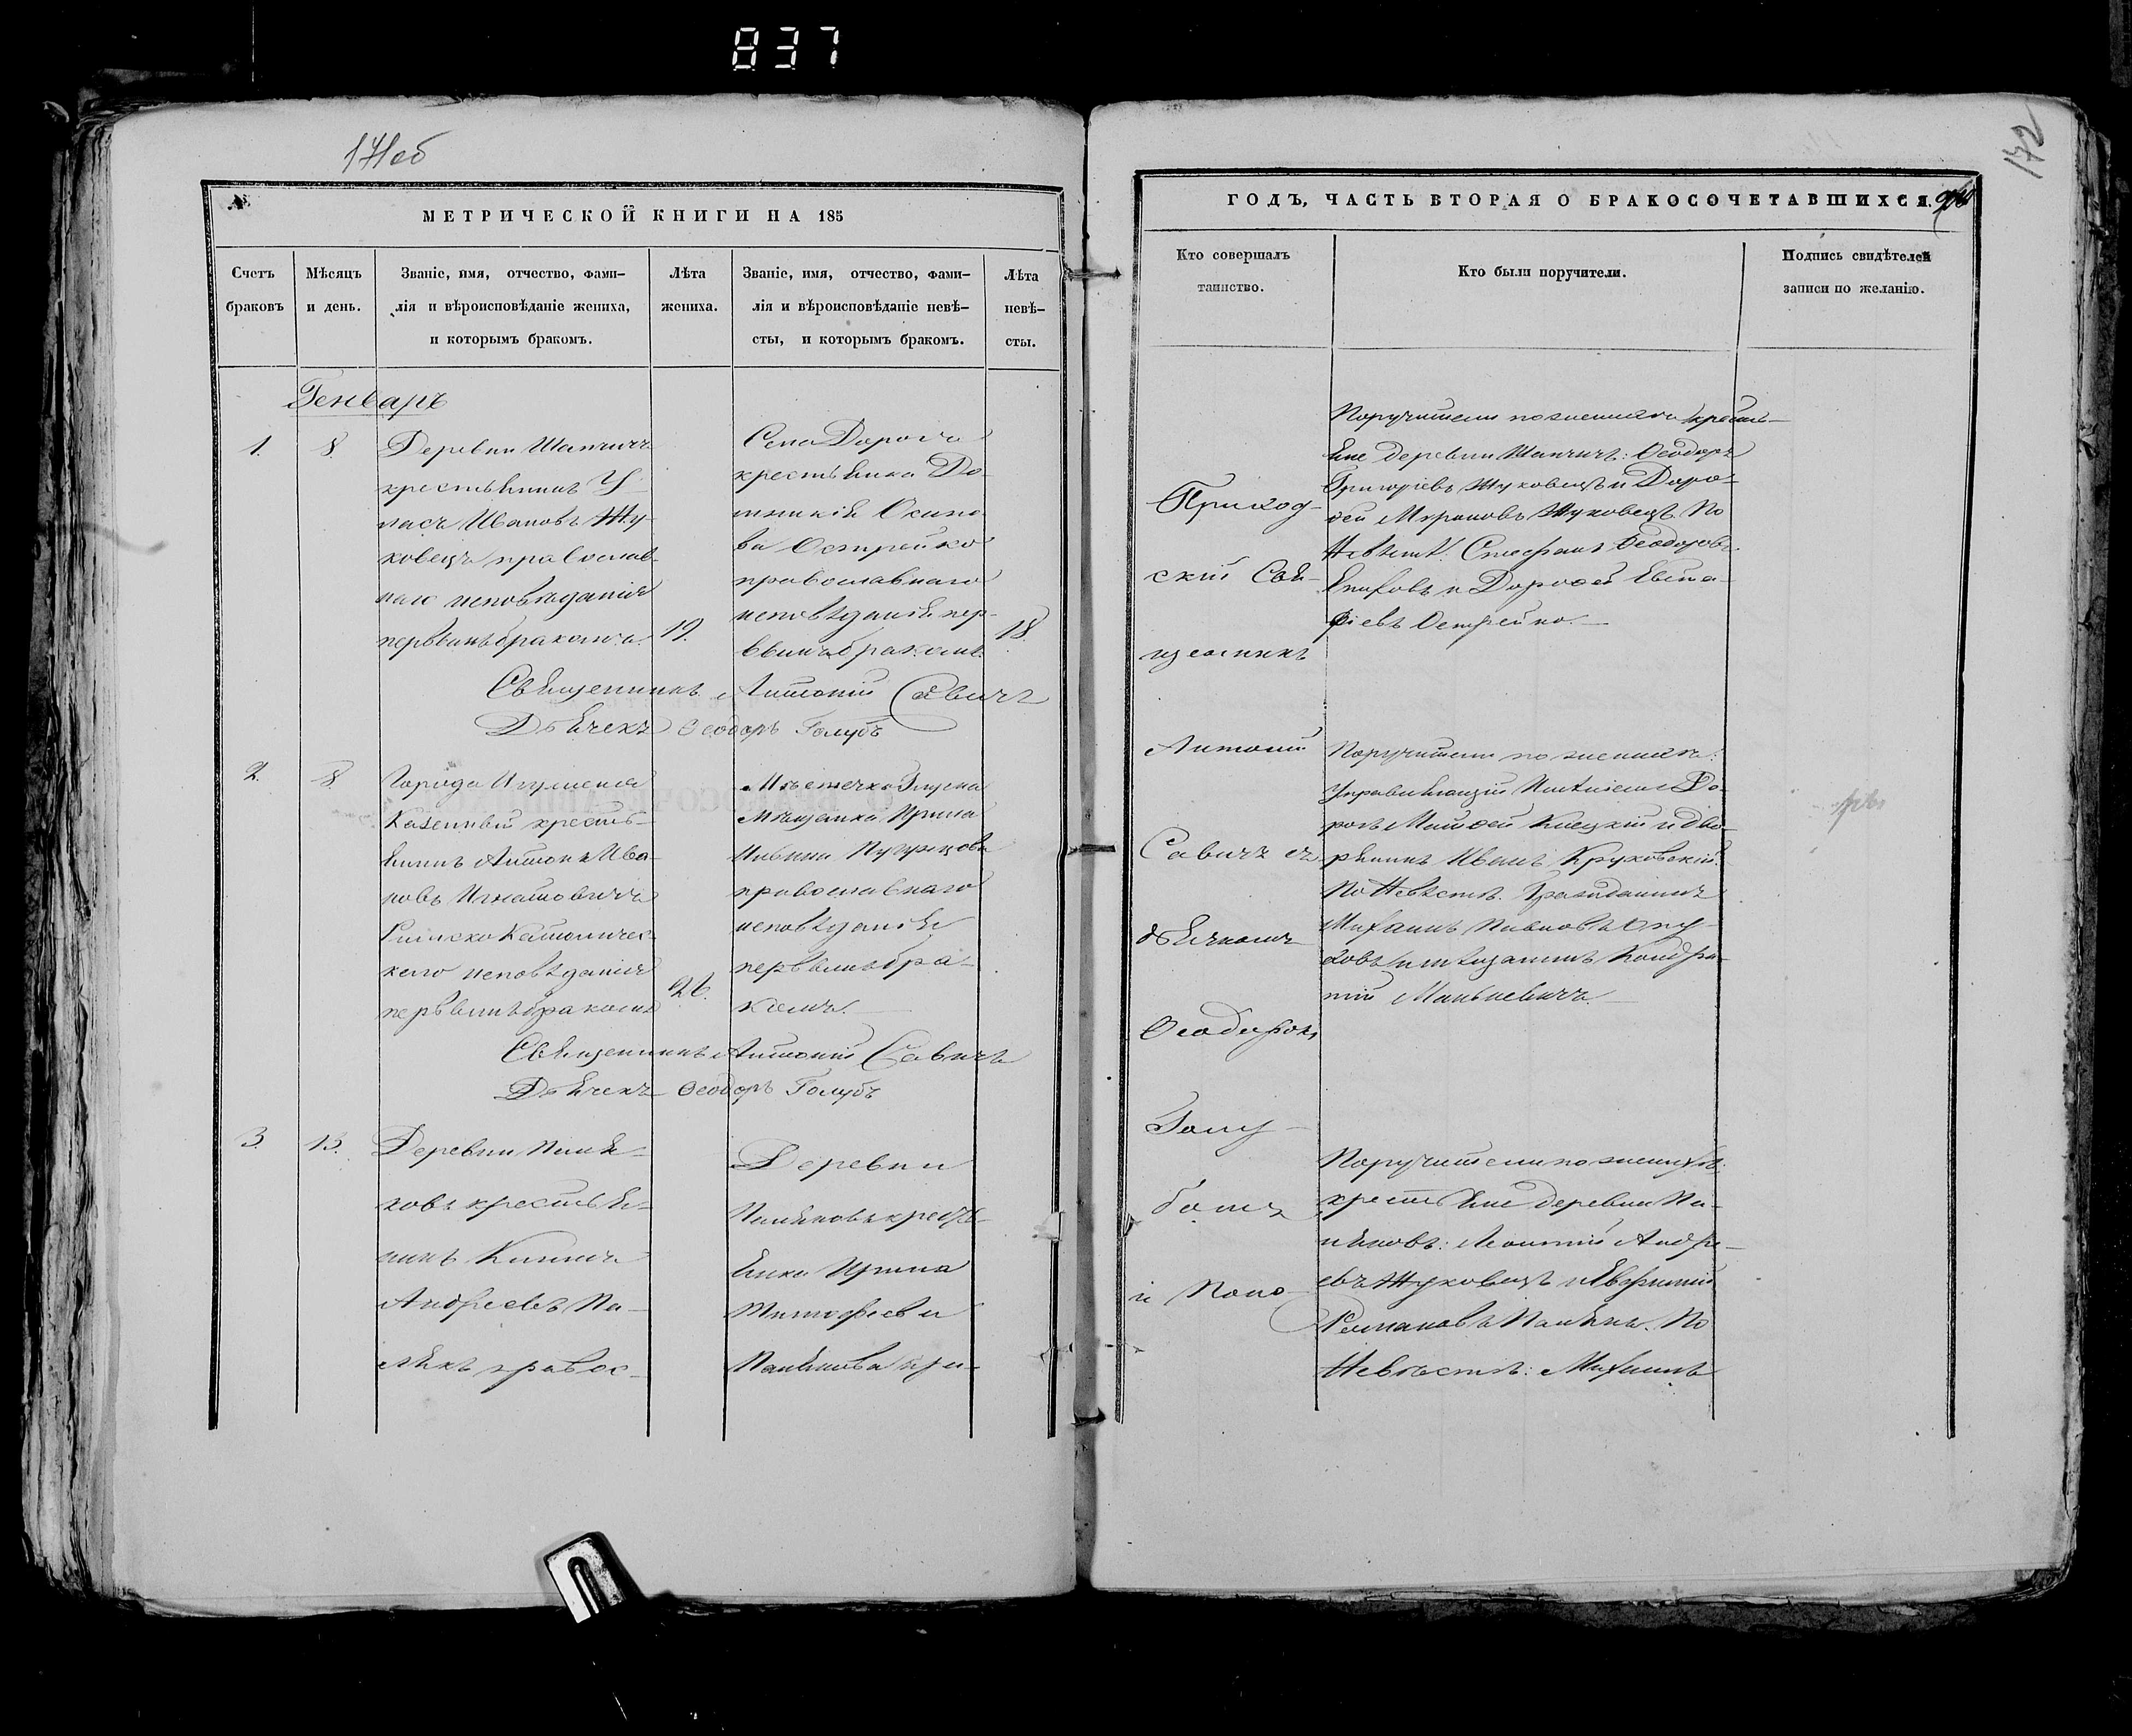 837
171об
172
МЕТРИЧЕСКОЙ КНИГИ НА 185
Счетъ браковъ
Мѣсяцъ и день.
Званіе, имя, отчество, фами-
лія и вѣроисповѣданіе жениха,
и которымъ бракомъ.
Лѣта жениха.
Званіе, имя, отчество, фами-
лія и вѣроисповѣданіе невѣ-
сты, и которымъ бракомъ.
Лѣта невѣ-
сты.
Генварь
1.
8.
Деревни Шапчичъ
крестьянинъ У-
ласъ Ивановъ Жу-
ковецъ православ-
наго исповѣданія
первымъ бракомъ.
19.
Села Дорогъ
крестьянка До-
Осипо-
ва Острейко
православнаго
исповѣданія пер-
вымъ бракомъ.
18.
Священникъ Антоній Савичъ
Дьячекъ Ѳеодоръ Голубъ
2.
8.
Города Игумена
Казенный кресть-
янинъ Антонъ Ива-
новъ Игнатовичъ
Римско Католичес-
каго исповѣданія
первымъ бракомъ
26.
Мѣстечка Глуска
Мѣщанка Ирина
православнаго
исповѣданія
первымъ бра-
комъ.
Священникъ Антоній Савичъ
Дьячекъ Ѳеодоръ Голубъ
3.
13.
Деревни Паля-
ковъ крестья-
нинъ
Андреевъ Па-
лякъ правос-
Деревни
Паляковъ кресть-
янка Ирина
Тимофеева
Палякова пра-
ГОДЪ, ЧАСТЬ ВТОРАЯ О БРАКОСОЧЕТАВШИХСЯ.
Кто совершалъ
таинство.
Кто были поручители.
Подпись свидѣтелей
записи по желанію.
Приход-
скій Свя-
щенникъ
Антоній
Савичъ съ
дьячкомъ
Ѳеодоромъ
Голу-
бомъ
и Поно-
Поручители по женихѣ кресть-
яне деревни Шапчичъ: Ѳеодоръ
Григоріевъ Жуковецъ и Доро-
ѳей Мироновъ Жуковецъ. По
Невѣстѣ: Стефанъ Ѳеодоровъ
и Дороѳей Евста-
фіевъ Острейко.
Поручители по женихѣ:
управляющій Имѣніемъ До-
рогъ Матѳей Клецкій и дво-
рянинъ Иванъ Круковскій.
По Невѣстѣ. Гражданинъ
Михаилъ
и мѣщанинъ Кондра-
тій
Поручители по женихѣ:
крестьяне деревни Па-
ляковъ: Леонтій Андре-
евъ Жуковецъ и Евфимій
Романовъ Палякъ. По
Невѣстѣ: Михаилъ